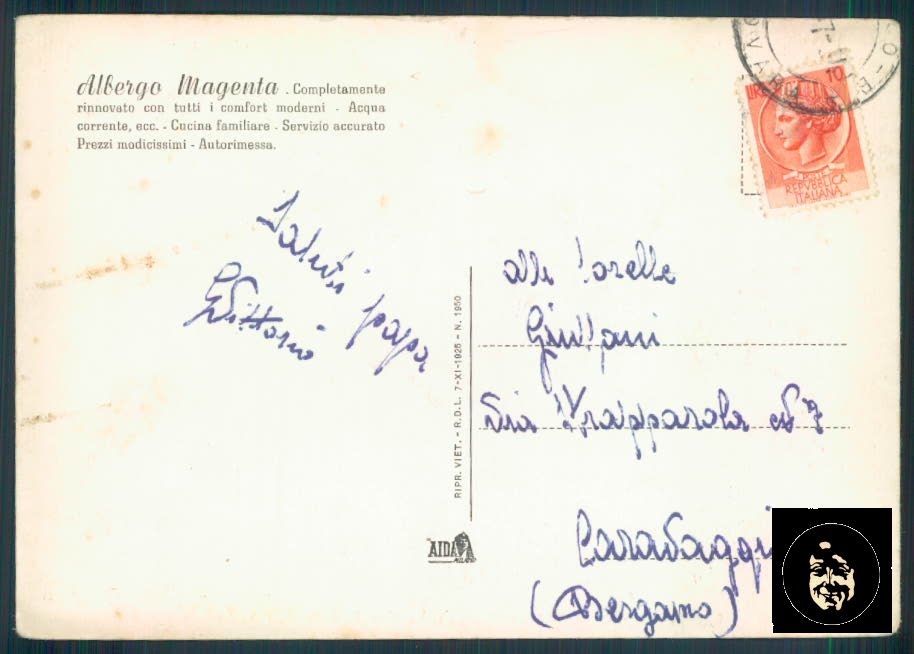 Albergo Magenta . Completamente
rinnovato con tutti i comfort moderni - Acqua
corrente, ecc. - Cucina familiare - Servizio accurato
Prezzi modicissimi - Autorimessa.
LIRE 10
POSTE
REPVBBLICA
ITALIANA
Saluti papa
Vittorio
RIPR. VIET. - R.D.L. 7-XI-1925 - N. 1950
AIDA
MILANO
alle sorelle
Via Strapparola N° 7
Caravaggi
(Bergamo)